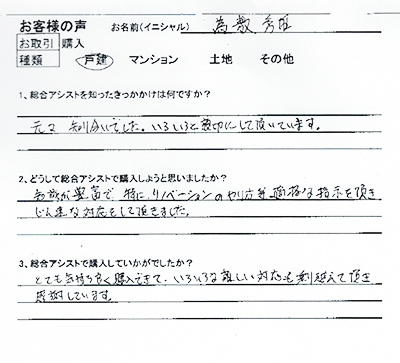 お客様の声 お名前(イニシャル)
お取引 購入
種類 戸建 マンション 土地 その他
1、総合アシストを知ったきっかけは何ですか?
元々知り合いでした。いろいろと親切にして頂いています。
2、どうして総合アシストで購入しようと思いましたか?
が豊富で、特に、リノベーションのやり方等、適格な指示を頂き
な対応をして頂きました。
3、総合アシストで購入していかがでしたか?
とても気持ち良く購入できて、いろいろな難しい対応も乗り越えて頂き
感謝しています。